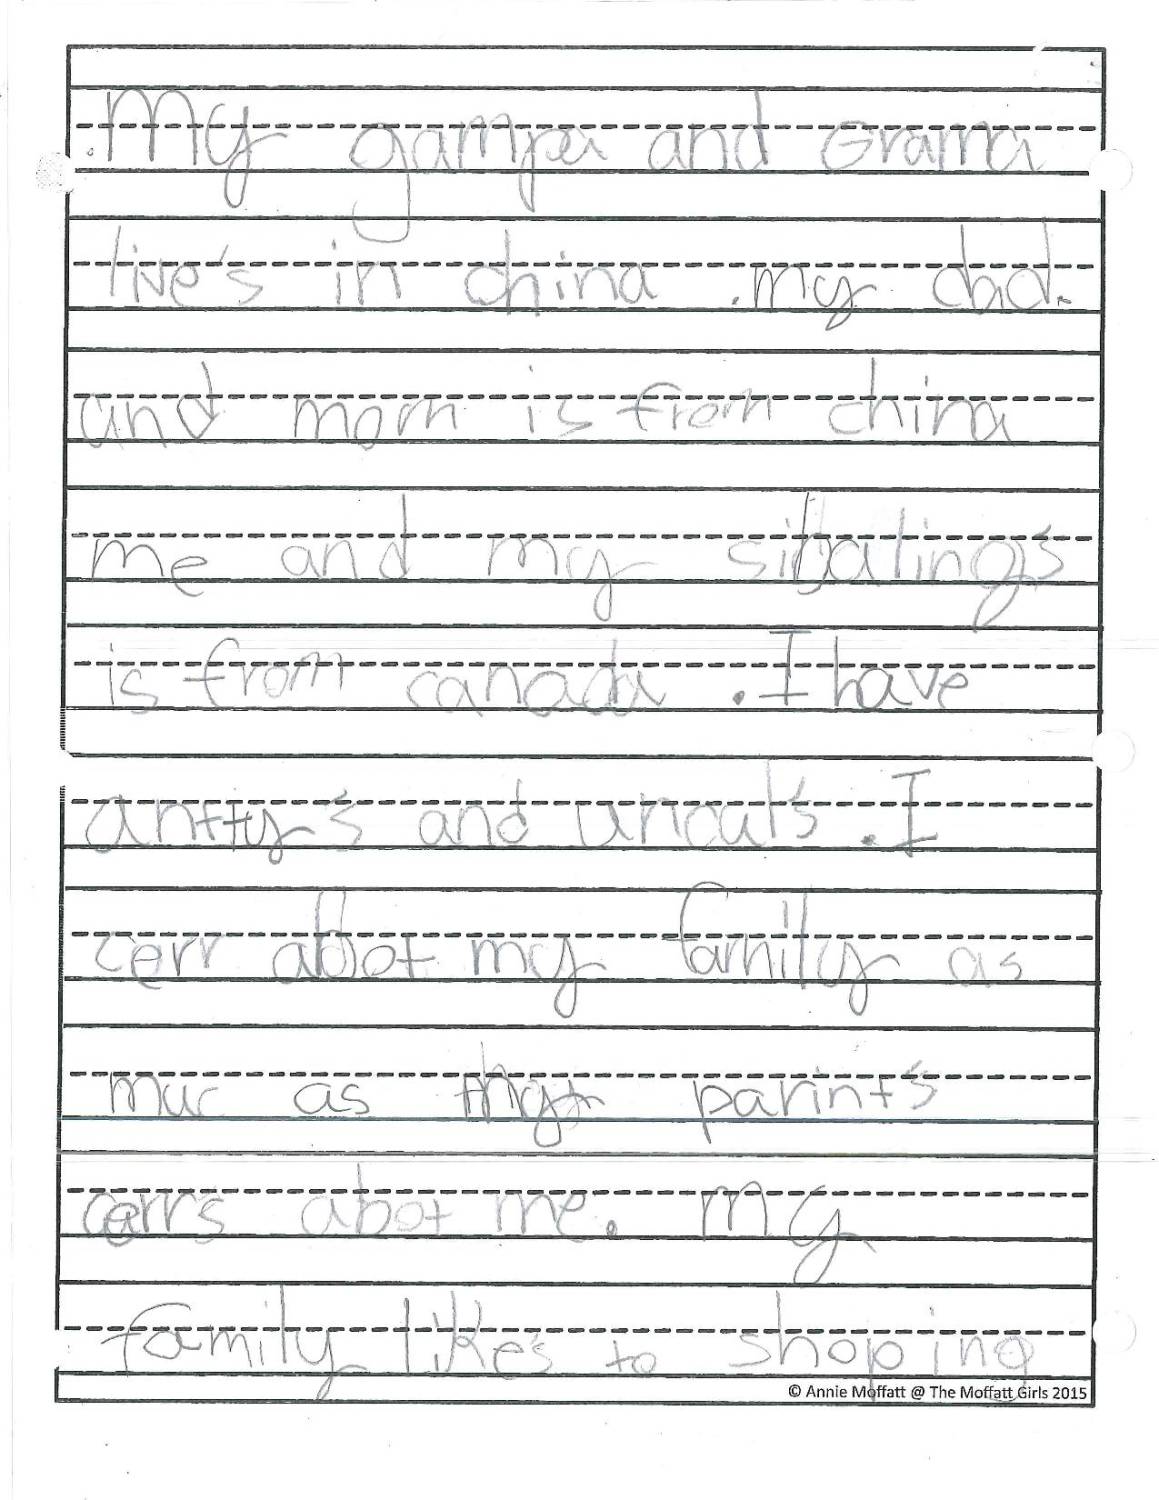 My gampa and Grama
live's in china .my dad.
and mom is from china
me and my sibalings
is from canada .I have
antty's and uncul's .I
cerr abbot my family as
muc as my parint's
cerrs abot me. My
family like's to shoping
© Annie Moffatt @ The Moffatt Girls 2015